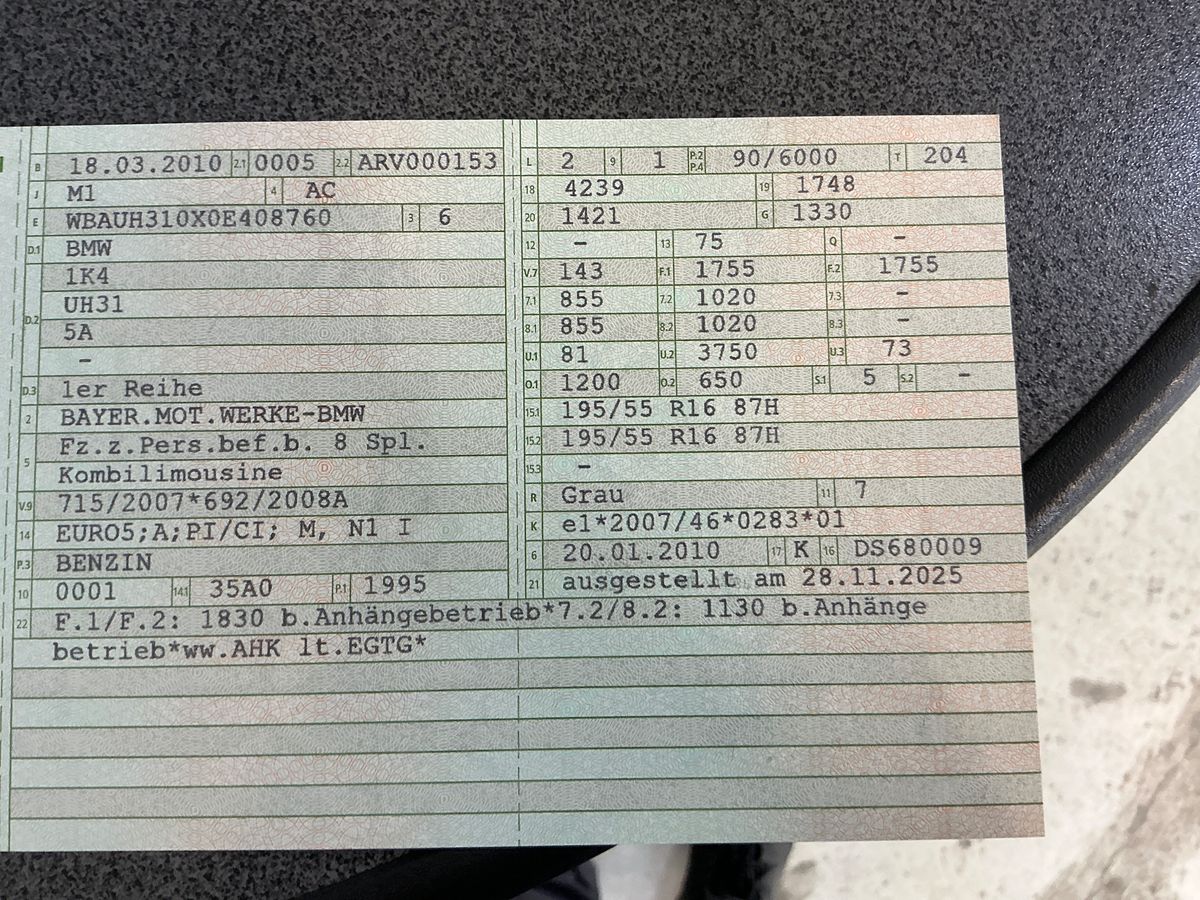 B 18.03.2010 2.1 0005 2.2 ARV000153
J M1 4 AC
E WBAUH310X0E408760 3 6
D.1 BMW
D.2 1K4
UH31
5A
–
D.3 1er Reihe
2 BAYER.MOT.WERKE-BMW
5 Fz.z.Pers.bef.b. 8 Spl.
Kombilimousine
V.9 715/2007*692/2008A
14 EURO5;A;PI/CI; M, N1 I
P.3 BENZIN
10 0001 14.1 35A0 P.1 1995
L 2 9 1 P.2 P.4 90/6000 T 204
18 4239 19 1748
20 1421 G 1330
12 – 13 75 Q –
V.7 143 F.1 1755 F.2 1755
7.1 855 7.2 1020 7.3 –
8.1 855 8.2 1020 8.3 –
U.1 81 U.2 3750 U.3 73
O.1 1200 O.2 650 S.1 5 S.2 –
15.1 195/55 R16 87H
15.2 195/55 R16 87H
15.3 –
R Grau 11 7
K e1*2007/46*0283*01
6 20.01.2010 17 K 16 DS680009
21 ausgestellt am 28.11.2025
22 F.1/F.2: 1830 b.Anhängebetrieb*7.2/8.2: 1130 b.Anhänge
betrieb*ww.AHK lt.EGTG*